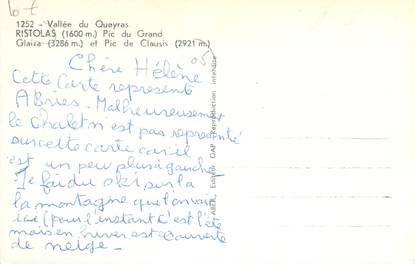 lot
1252 - Vallée du Queyras
RISTOLAS (1600 m.) Pic du Grand
Glaiza (3286 m.) et Pic de Clausis (2921 m.)
05
Chère Hélène
Cette carte represente
ABries - Malheureusement
le chalet n'est pas representé
sur cette carte car il
est un peu plus a gauche
Je fai du ski sur la
la montagne que l'on voit
ici (pour l'instant c'est l'été
mais en hiver est couverte
de neige -
Editeur GAP Reproduction interdite